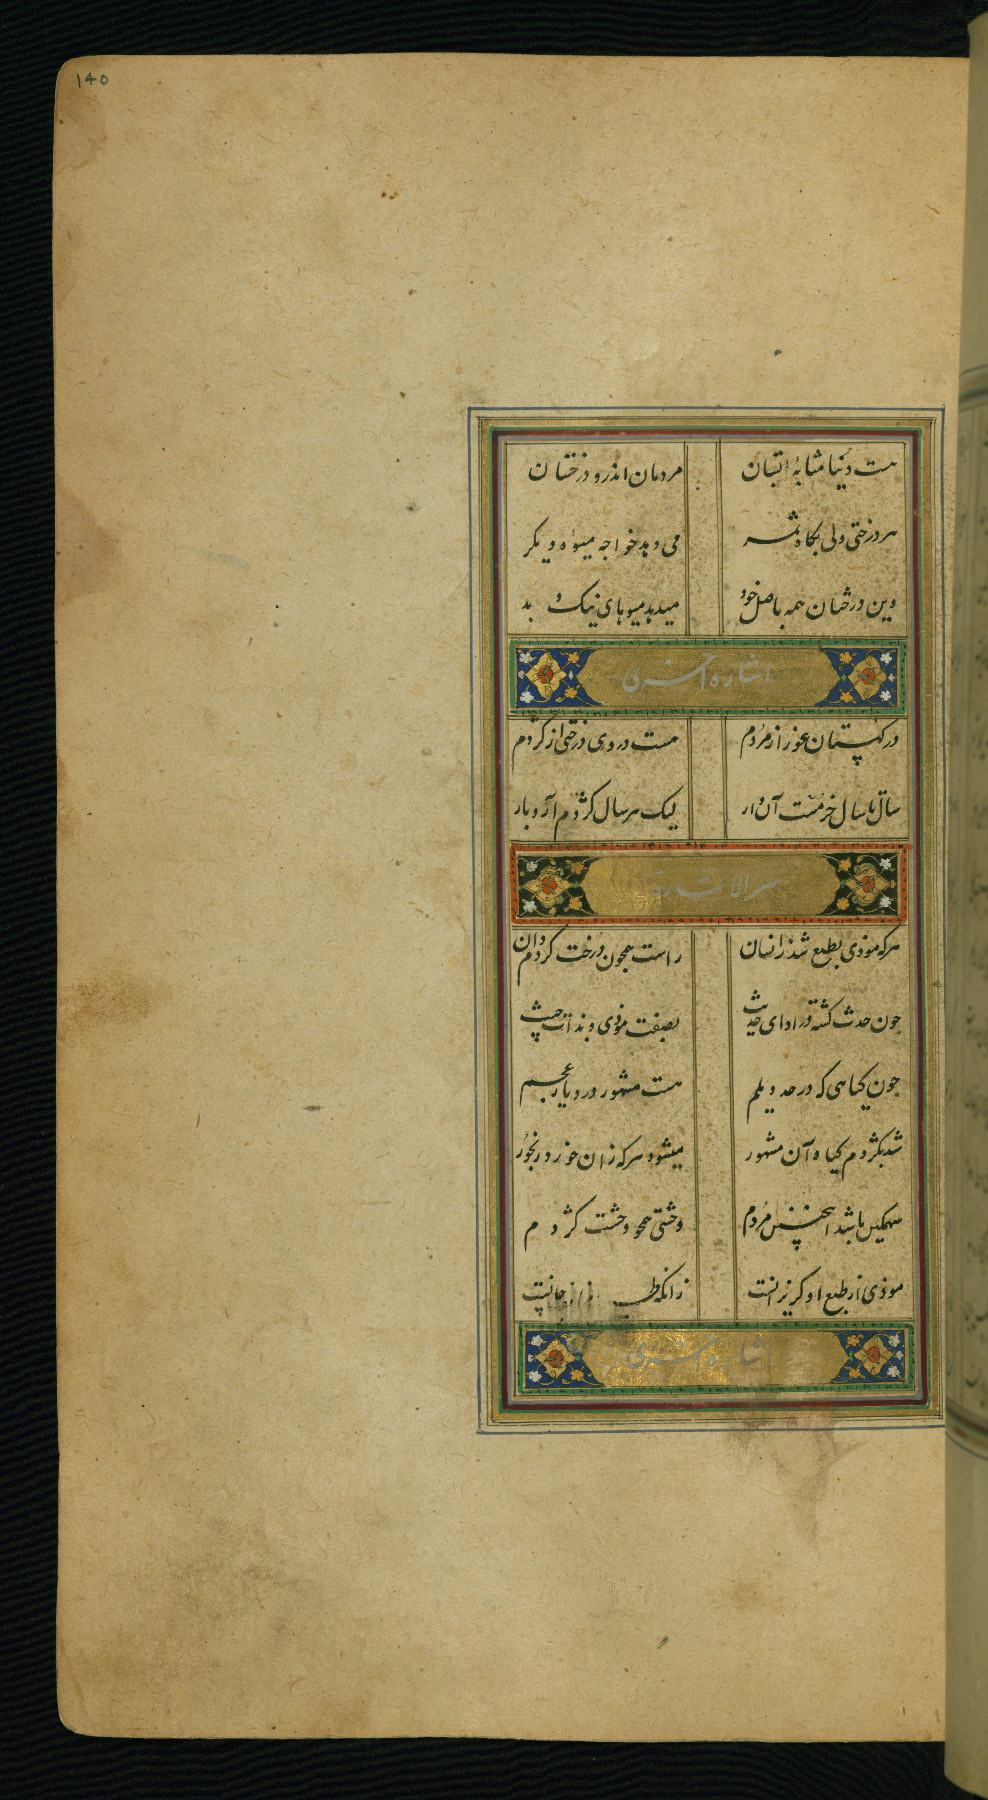 ۱۴۵
هست دنیا مثابهٔ بستان مردمان اندرو درختان
هر درختی ولی بگاه ثمر می دهد خواجه میوهٔ دیگر
وین درختان همه باصل خود میدهد میوهای نیک و بد
اشاره اخری
در کهستان غور از مردم هست در وی درختی از کژدم
سال تا سال خرمست آن دار لیک هر سال کژدم آرد بار
سر الاشارة
هرکه موذی بطبع شد ز انسان راست همچون درخت کژدم دان
چون حدث کشته در ادای حدیث بصفت موذی و بذات خبیث
چون کیاهی که در حد دیلم هست مشهور در دیار عجم
شد بکژدم کیاه آن مشهور میشود هرکه زان خورد رنجور
سهمکین باشد اینچنین مردم وحشتی همچو وحشت کژدم
موذی از طبع او کریزانست زانکه
اشاره اخری